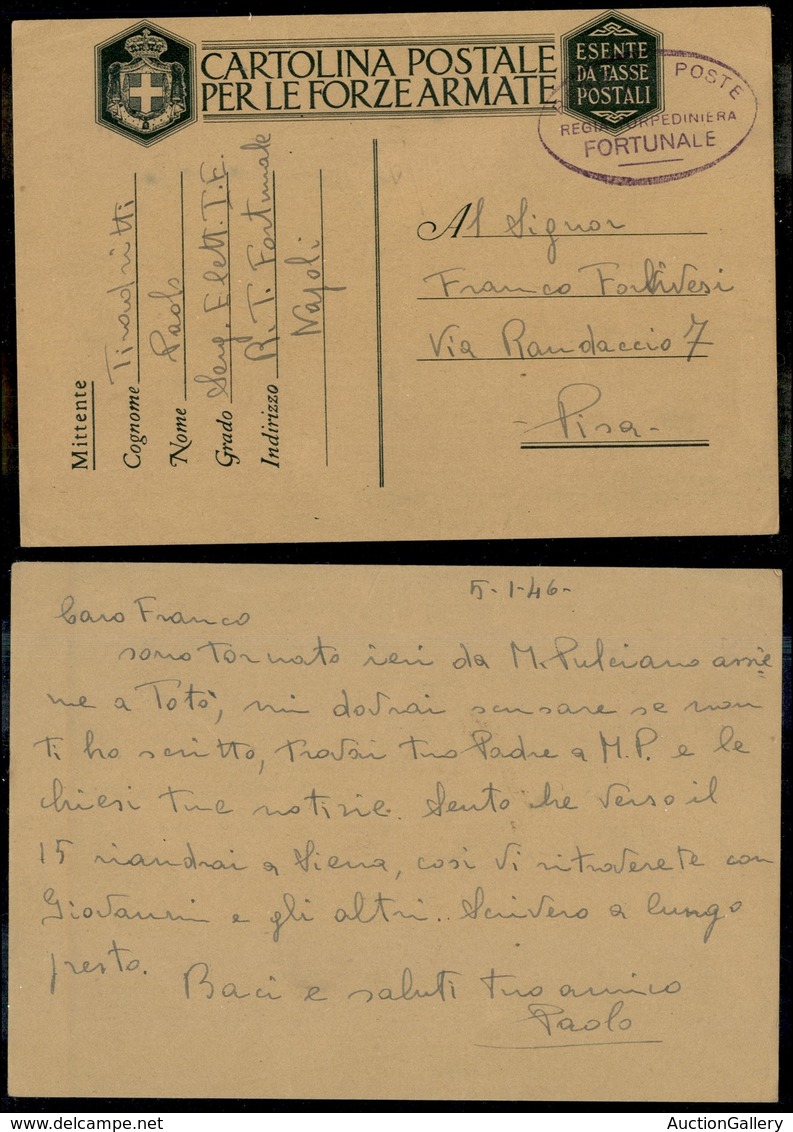 CARTOLINA POSTALE
PER LE FORZE ARMATE
ESENTE
DA TASSE
POSTALI
POSTE
REGIA TORPEDINIERA
FORTUNALE
Mittente
Cognome Tiradritti
Nome Paolo
Grado Serg. Elett. I.F.
Indirizzo R.T. Fortunale
Napoli
Al Signor
Franco Forlivesi
Via Randaccio 7
-Pisa-
5-1-46-
Caro Franco
sono tornato ieri da M. Pulciano assie=
me a Totò, mi dovrai scusare se non
ti ho scritto, trovai tuo Padre a M.P. e le
chiesi tue notizie. Sento che verso il
15 riandrai a Siena, così vi ritroverete con
Giovannin e gli altri.. Scriverò a lungo
presto.
Baci e saluti tuo amico
Paolo
AuctionGallery